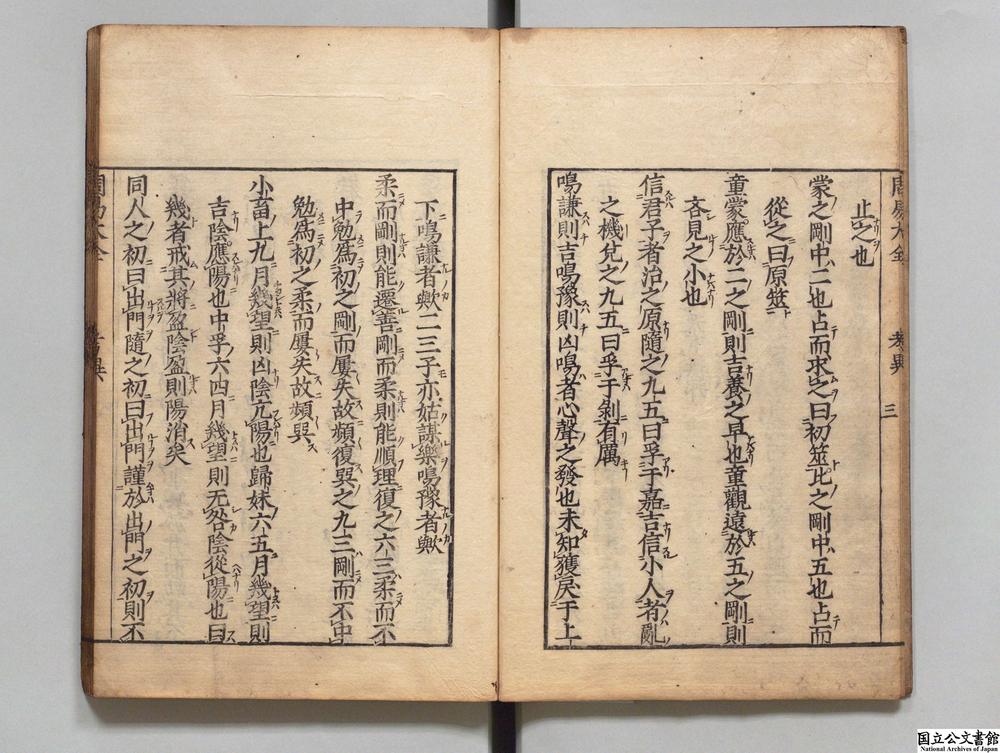 周易大全 卷異 三
止之也
蒙之剛中二也占而求之曰初筮比之剛中五也占而
從之曰原筮
童蒙應於二之剛則吉養之早也童觀遠於五之剛則
吝見之小也
信君子者治之原隨之九五曰孚于嘉吉信小人者亂
之機兌之九五曰孚于剝有厲
鳴謙則吉鳴豫則凶鳴者心聲之發也未知獲戾于上
下鳴謙者歟二三子亦姑謀樂鳴豫者歟
柔而剛則能遷善剛而柔則能順理復之六三柔而不
中勉爲初之剛而屢失故頻復巽之九三剛而不中
勉爲初之柔而屢失故頻巽
小畜上九月幾望則凶陰亢陽也歸妹六五月幾望則
吉陰應陽也中孚六四月幾望則无咎陰從陽也曰
幾者戒其將盈陰盈則陽消矣
同人之初曰出門隨之初曰出門謹於出門之初則不
周易大全
國立公文書館
National Archives of Japan